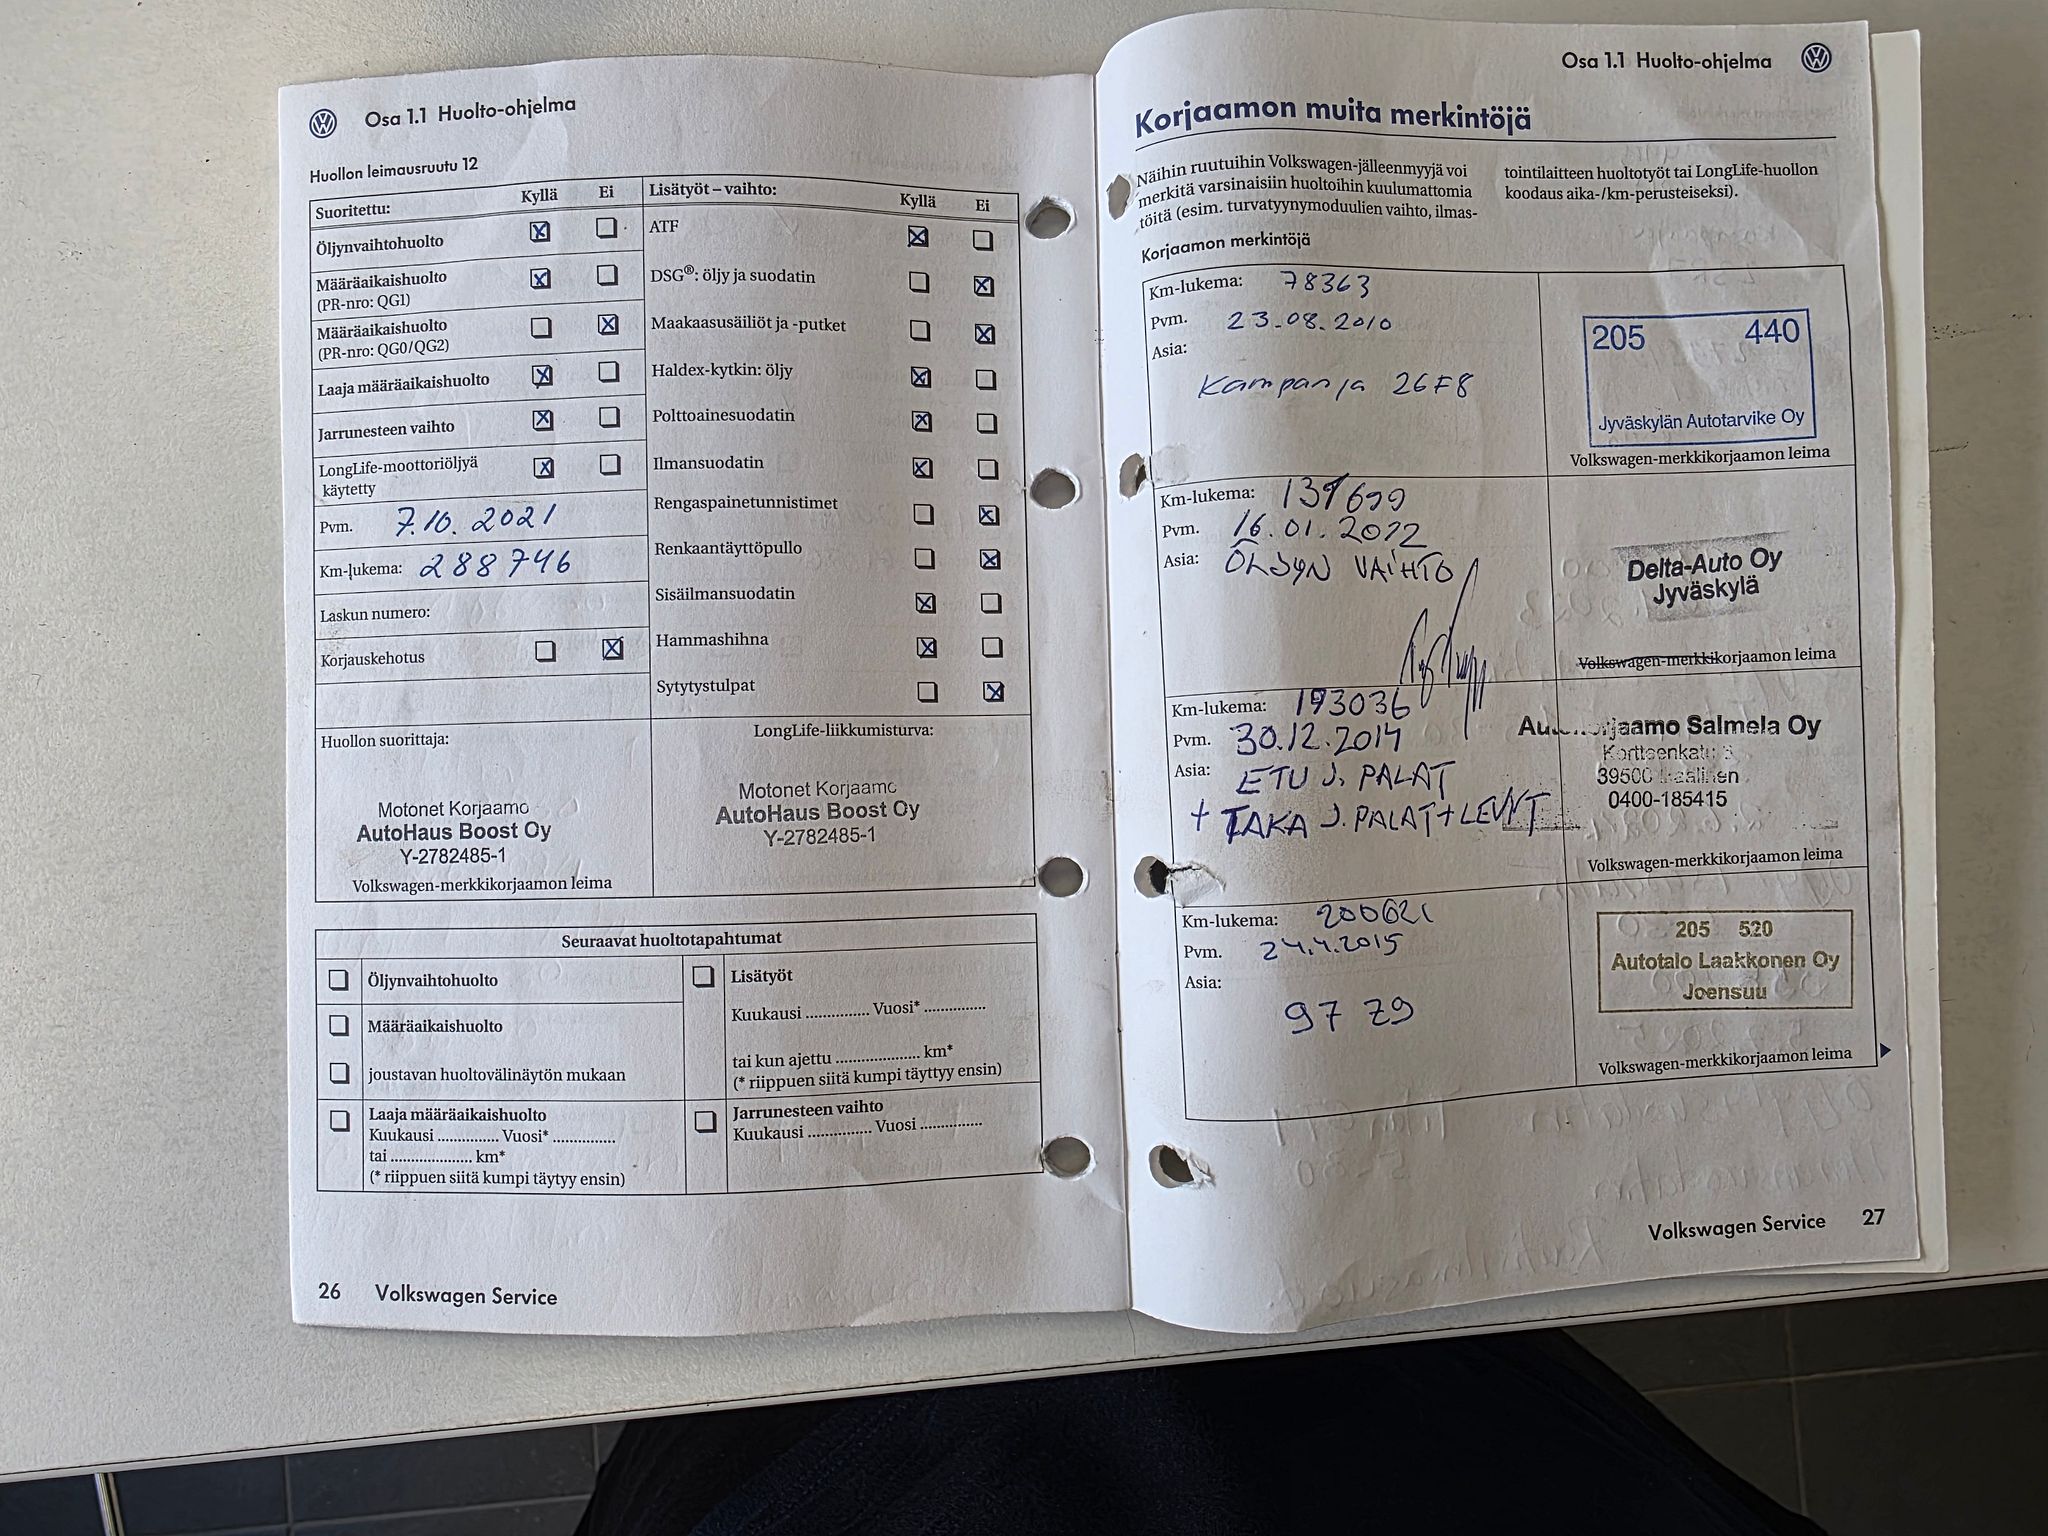 Osa 1.1 Huolto-ohjelma
Huollon leimausruutu 12
Suoritettu: Kyllä Ei
Öljynvaihtohuolto
Määräaikaishuolto
(PR-nro: QG1)
Määräaikaishuolto
(PR-nro: QG0/QG2)
Laaja määräaikaishuolto
Jarrunesteen vaihto
LongLife-moottoriöljyä
käytetty
Pvm. 7.10. 2021
Km-lukema: 288746
Laskun numero:
Korjauskehotus
Lisätyöt – vaihto: Kyllä Ei
ATF
DSG®: öljy ja suodatin
Maakaasusäiliöt ja -putket
Haldex-kytkin: öljy
Polttoainesuodatin
Ilmansuodatin
Rengaspainetunnistimet
Renkaantäyttöpullo
Sisäilmansuodatin
Hammashihna
Sytytystulpat
Huollon suorittaja:
Motonet Korjaamo
AutoHaus Boost Oy
Y-2782485-1
Volkswagen-merkkikorjaamon leima
LongLife-liikkumisturva:
Motonet Korjaamo
AutoHaus Boost Oy
Y-2782485-1
Seuraavat huoltotapahtumat
Öljynvaihtohuolto
Määräaikaishuolto
joustavan huoltovälinäytön mukaan
Laaja määräaikaishuolto
Kuukausi ............... Vuosi* ...............
tai .................... km*
(* riippuen siitä kumpi täytyy ensin)
Lisätyöt
Kuukausi ............... Vuosi* ...............
tai kun ajettu .................... km*
(* riippuen siitä kumpi täyttyy ensin)
Jarrunesteen vaihto
Kuukausi ............... Vuosi ...............
26 Volkswagen Service
Osa 1.1 Huolto-ohjelma
Korjaamon muita merkintöjä
Näihin ruutuihin Volkswagen-jälleenmyyjä voi
merkitä varsinaisiin huoltoihin kuulumattomia
töitä (esim. turvatyynymoduulien vaihto, ilmas-
tointilaitteen huoltotyöt tai LongLife-huollon
koodaus aika-/km-perusteiseksi).
Korjaamon merkintöjä
Km-lukema: 78363
Pvm. 23.08.2010
Asia:
Kampanja 26F8
205 440
Jyväskylän Autotarvike Oy
Volkswagen-merkkikorjaamon leima
Km-lukema: 137699
Pvm. 16.01.2012
Asia: ÖLJYN VAIHTO
Delta-Auto Oy
Jyväskylä
Volkswagen-merkkikorjaamon leima
Km-lukema: 193036
Pvm. 30.12.2014
Asia: ETU J. PALAT
+ TAKA J. PALAT + LEVYT
Salmela Oy
39500
0400-185415
Volkswagen-merkkikorjaamon leima
Km-lukema: 200621
Pvm. 24.4.2015
Asia:
97 Z9
205 520
Autotalo Laakkonen Oy
Joensuu
Volkswagen-merkkikorjaamon leima
Volkswagen Service 27